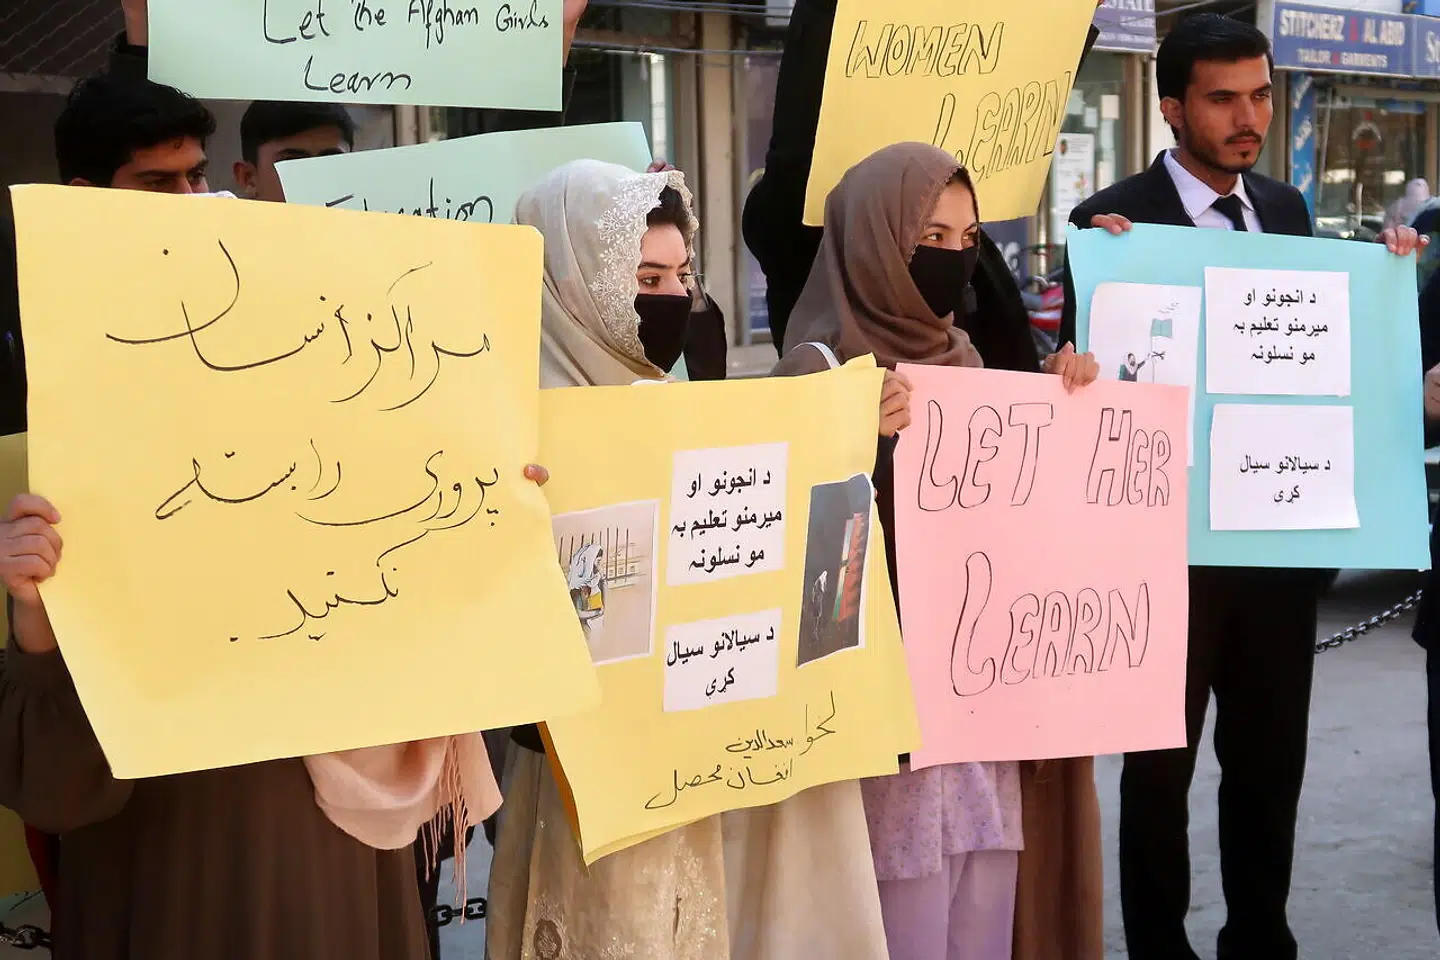 Let The Afghan Girls
Learn
Education
WOMEN
LEARN
STITCHERZ & AL ABID
TAILOR & GARMENTS
مراکز انسان
پروری را بسته
نکنید.
د انجونو او
میرمنو تعلیم به
مو نسلونه
د سیالانو سیال
کړي
سعدالدین
افغان محصل
LET HER
LEARN
د انجونو او
میرمنو تعلیم به
مو نسلونه
د سیالانو سیال
کړي